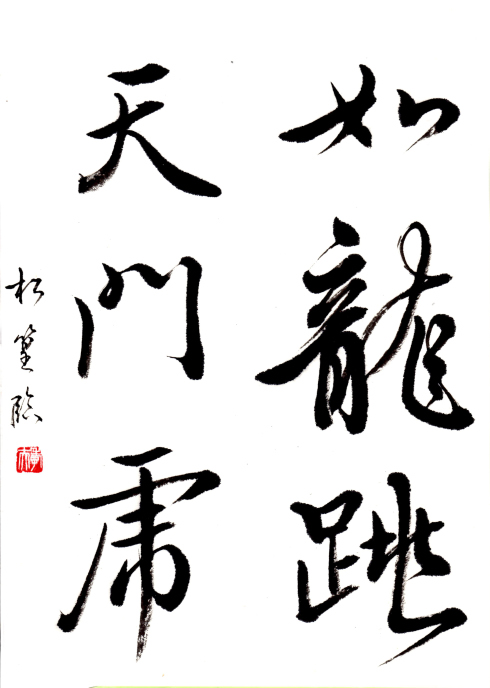 如龍跳
天門虎
松篁臨